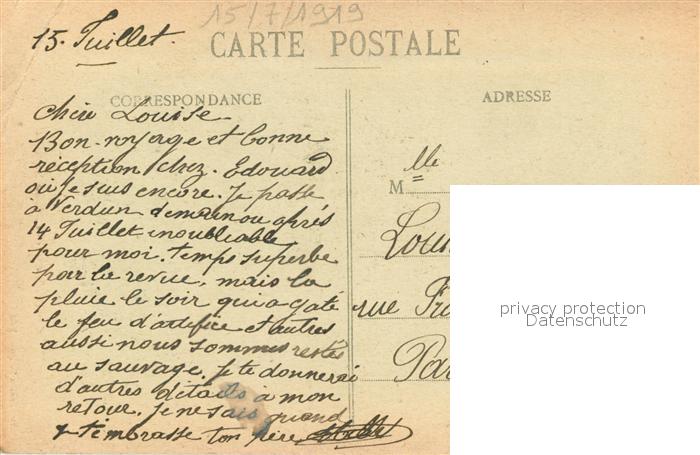 15/7/1919
15. Juillet.
CARTE POSTALE
CORRESPONDANCE
ADRESSE
Chère Louise
Bon voyage et bonne
réception chez Edouard
où je suis encore. Je passe
à Verdun demain ou après
14 Juillet inoubliable
pour moi. temps superbe
par la revue, mais la
pluie le soir qui a gaté
le feu d'artifice et autres
aussi nous sommes restés
au sauvage. Je te donnerai
d'autres détails à mon
retour. je ne sais quand
t'embrasse ton père
Mlle
Loui
rue
Par
privacy protection
Datenschutz